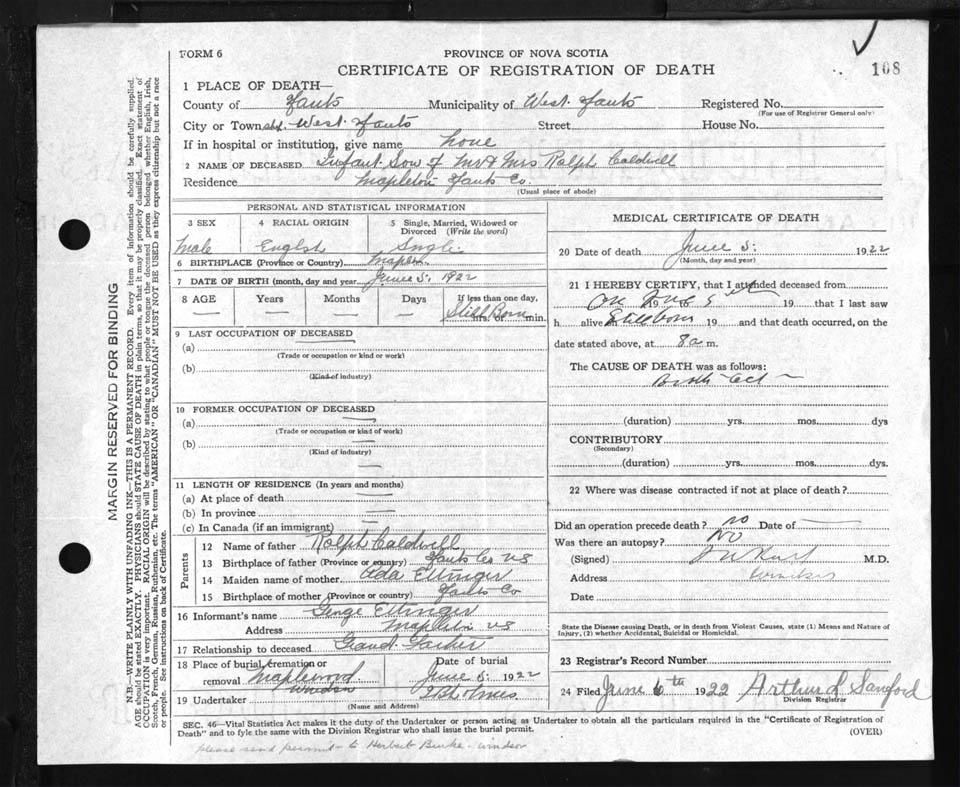 FORM 6
PROVINCE OF NOVA SCOTIA
CERTIFICATE OF REGISTRATION OF DEATH
108
1 PLACE OF DEATH—
County of Hants Municipality of West Hants Registered No.
(For use of Registrar General only)
City or Town West Hants Street House No.
If in hospital or institution, give name none
2 NAME OF DECEASED Infant Son of Mr & Mrs Ralph Caldwell
Residence Mapleton Hants Co.
(Usual place of abode)
PERSONAL AND STATISTICAL INFORMATION
3 SEX 4 RACIAL ORIGIN 5 Single, Married, Widowed or
Divorced (Write the word)
Male Englsh Single
6 BIRTHPLACE (Province or Country)
7 DATE OF BIRTH (month, day and year) June 5. 1922
8 AGE Years Months Days If less than one day,
— — — — Still Born hrs. or min.
9 LAST OCCUPATION OF DECEASED
(a)
(Trade or occupation or kind or work)
(b)
(Kind of industry)
10 FORMER OCCUPATION OF DECEASED
(a)
(Trade or occupation or kind of work)
(b)
(Kind of industry)
11 LENGTH OF RESIDENCE (In years and months)
(a) At place of death
(b) In province
(c) In Canada (if an immigrant)
Parents
12 Name of father Ralph Caldwell
13 Birthplace of father (Province or country) Hants Co NS
14 Maiden name of mother Ada Ettinger
15 Birthplace of mother (Province or country) Hants Co
16 Informant's name George Ettinger
Address Mapleton NS
17 Relationship to deceased Grand Father
18 Place of burial, cremation or Date of burial
removal Maplewood June 5. 1922
Windsor
19 Undertaker
(Name and Address)
MEDICAL CERTIFICATE OF DEATH
20 Date of death June 5. 1922
(Month, day and year)
21 I HEREBY CERTIFY, that I attended deceased from
On June 5th 19 19 that I last saw
h alive Stillborn 19 and that death occurred, on the
date stated above, at 8a m.
The CAUSE OF DEATH was as follows:
(duration) yrs. mos. dys
CONTRIBUTORY
(Secondary)
(duration) yrs. mos. dys.
22 Where was disease contracted if not at place of death?
Did an operation precede death? no Date of —
Was there an autopsy? No
(Signed) M.D.
Address
Date
State the Disease causing Death, or in death from Violent Causes, state (1) Means and Nature of
Injury, (2) whether Accidental, Suicidal or Homicidal.
23 Registrar's Record Number
24 Filed June 6th 1922 Arthur L Sanford
Division Registrar
SEC. 46—Vital Statistics Act makes it the duty of the Undertaker or person acting as Undertaker to obtain all the particulars required in the "Certificate of Registration of
Death" and to fyle the same with the Division Registrar who shall issue the burial permit.
(OVER)
please send permit to Herbert Burke - windsor
MARGIN RESERVED FOR BINDING
N.B.—WRITE PLAINLY WITH UNFADING INK—THIS IS A PERMANENT RECORD. Every item of information should be carefully supplied.
AGE should be stated EXACTLY. PHYSICIANS should STATE CAUSE OF DEATH in plain terms, so that it may be properly classified. Exact statement of
OCCUPATION is very important. RACIAL ORIGIN will be described by stating to what people or tongue the deceased person belonged whether English, Irish,
Scotch, French, German, Russian, Ruthenian, etc. The terms "AMERICAN" or "CANADIAN" MUST NOT BE USED as they express citizenship but not a race
or people. See instructions on back of Certificate.